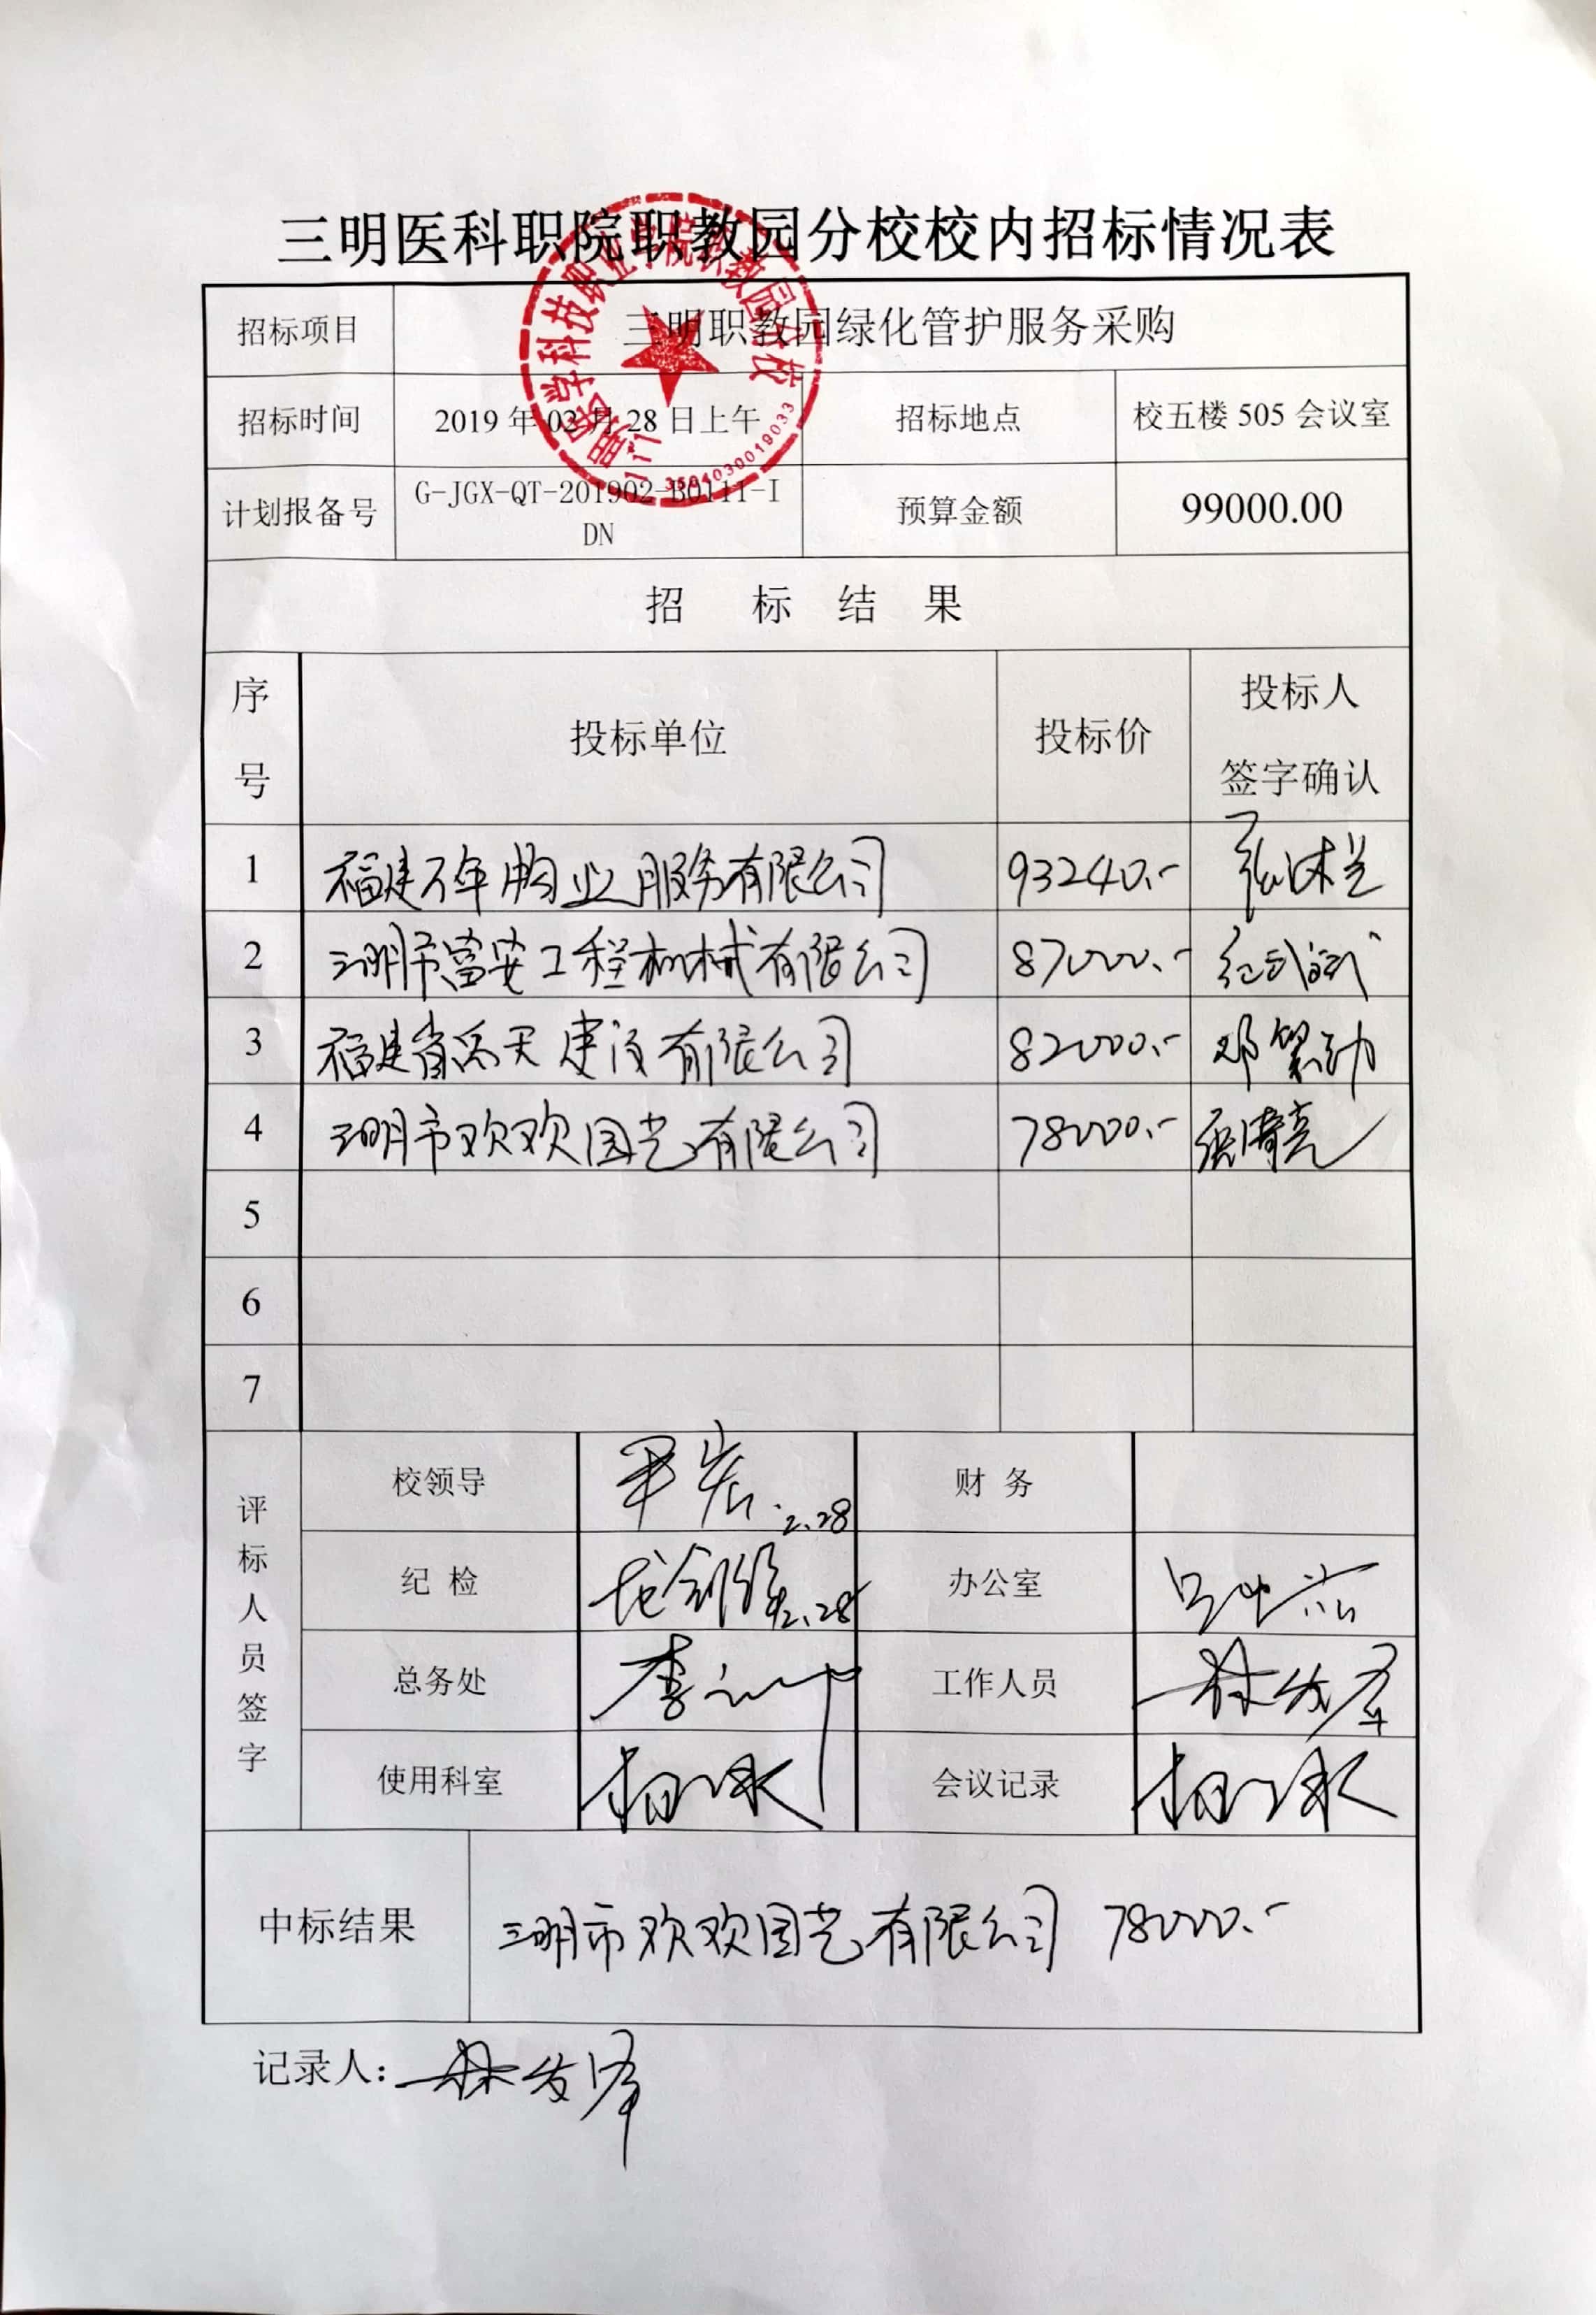 三明医科职院职教园分校校内招标情况表
招标项目 三明职教园绿化管护服务采购
招标时间 2019年02月28日上午 招标地点 校五楼505会议室
计划报备号 G-JGX-QT-201902-B0111-I
DN 预算金额 99000.00
招 标 结 果
序号 投标单位 投标价 投标人
签字确认
1 福建万年物业服务有限公司 93240.-
2 三明市富安工程机械有限公司 87000.-
3 福建省禹天建设有限公司 82000.-
4 三明市欢欢园艺有限公司 78000.-
5
6
7
评标人员签字
校领导 2.28 财 务
纪 检 2.28 办公室
总务处 工作人员
使用科室 会议记录
中标结果 三明市欢欢园艺有限公司 78000.-
记录人: